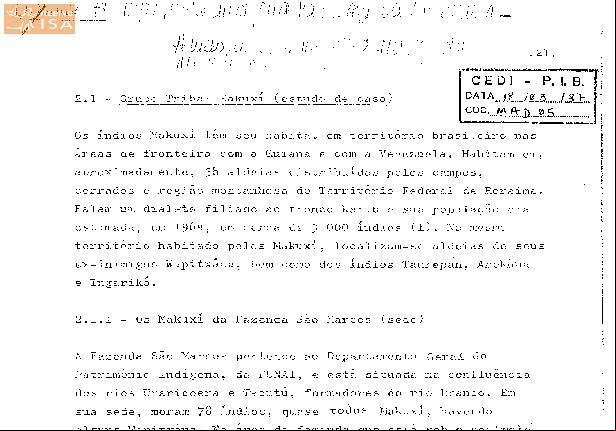 ISA
21.
CEDI - P.I.B.
DATA 18 / 03 / 87
COD. MAD05
2.1 - Grupo Tribal Makuxí (estudo de caso)
Os índios Makuxí têm seu habitat em território brasileiro nas
áreas de fronteira com a Guiana e com a Venezuela. Habitam em,
aproximadamente, 36 aldeias distribuídas pelos campos,
cerrados e região montanhosa do Território Federal de Roraima.
Falam um dialeto filiado ao tronco Karib e sua população era
estimada, em 1969, em cerca de 3 000 índios (1). No mesmo
território habitado pelos Makuxí, localizam-se aldeias de seus
ex-inimigos Wapitxána, bem como dos índios Taurepán, Arekúna
e Ingarikó.
2.1.1 - Os Makuxí da Fazenda São Marcos (sede)
A Fazenda São Marcos pertence ao Departamento Geral do
Patrimônio Indígena, da FUNAI, e está situada na confluência
dos rios Uraricoera e Tacutú, formadores do rio Branco. Em
sua sede, moram 78 índios, quase todos Makuxí, havendo
alguns Wapitxána. Na área da fazenda que está sob o